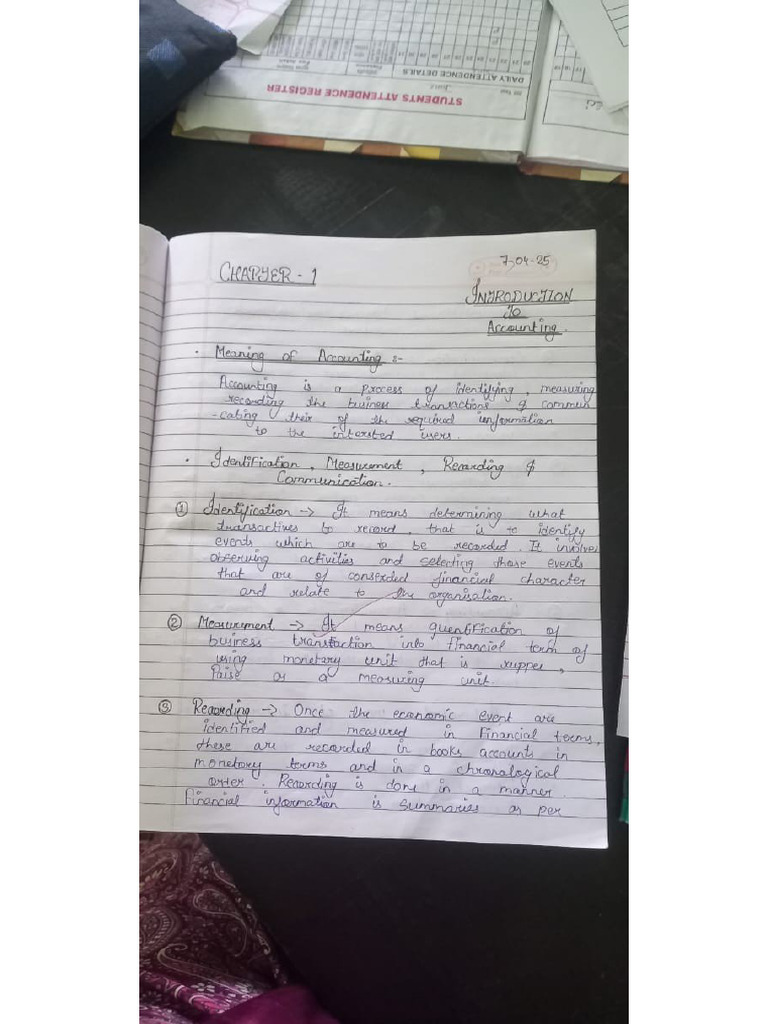 STUDENTS ATTENDENCE REGISTER
DAILY ATTENDENCE DETAILS
7-04-25
CHAPTER - 1
INTRODUCTION
To
Accounting.
• Meaning of Accounting :-
Accounting is a process of identifying, measuring
recording the business transactions & commun
-cating their of the required information
to the intersted users.
• Identification, Measurement, Recarding &
Communication.
① Identification → It means determining what
transactives to record, that is to identify
events which are to be recorded. It involves
observing activities and selecting those events
that are of conserded financial character
and relate to the organisation.
② Measurement → It means quentification of
business transtaction into financial term of
using monetary unit that is ruppes,
Paise as a measuring unit.
③ Recording → Once the economic event are
identified and measured in Financial terms,
these are recorded in books accounts in
monetary terms and in a chronological
orter. Recording is done in a manner.
Financial information is summaries as per